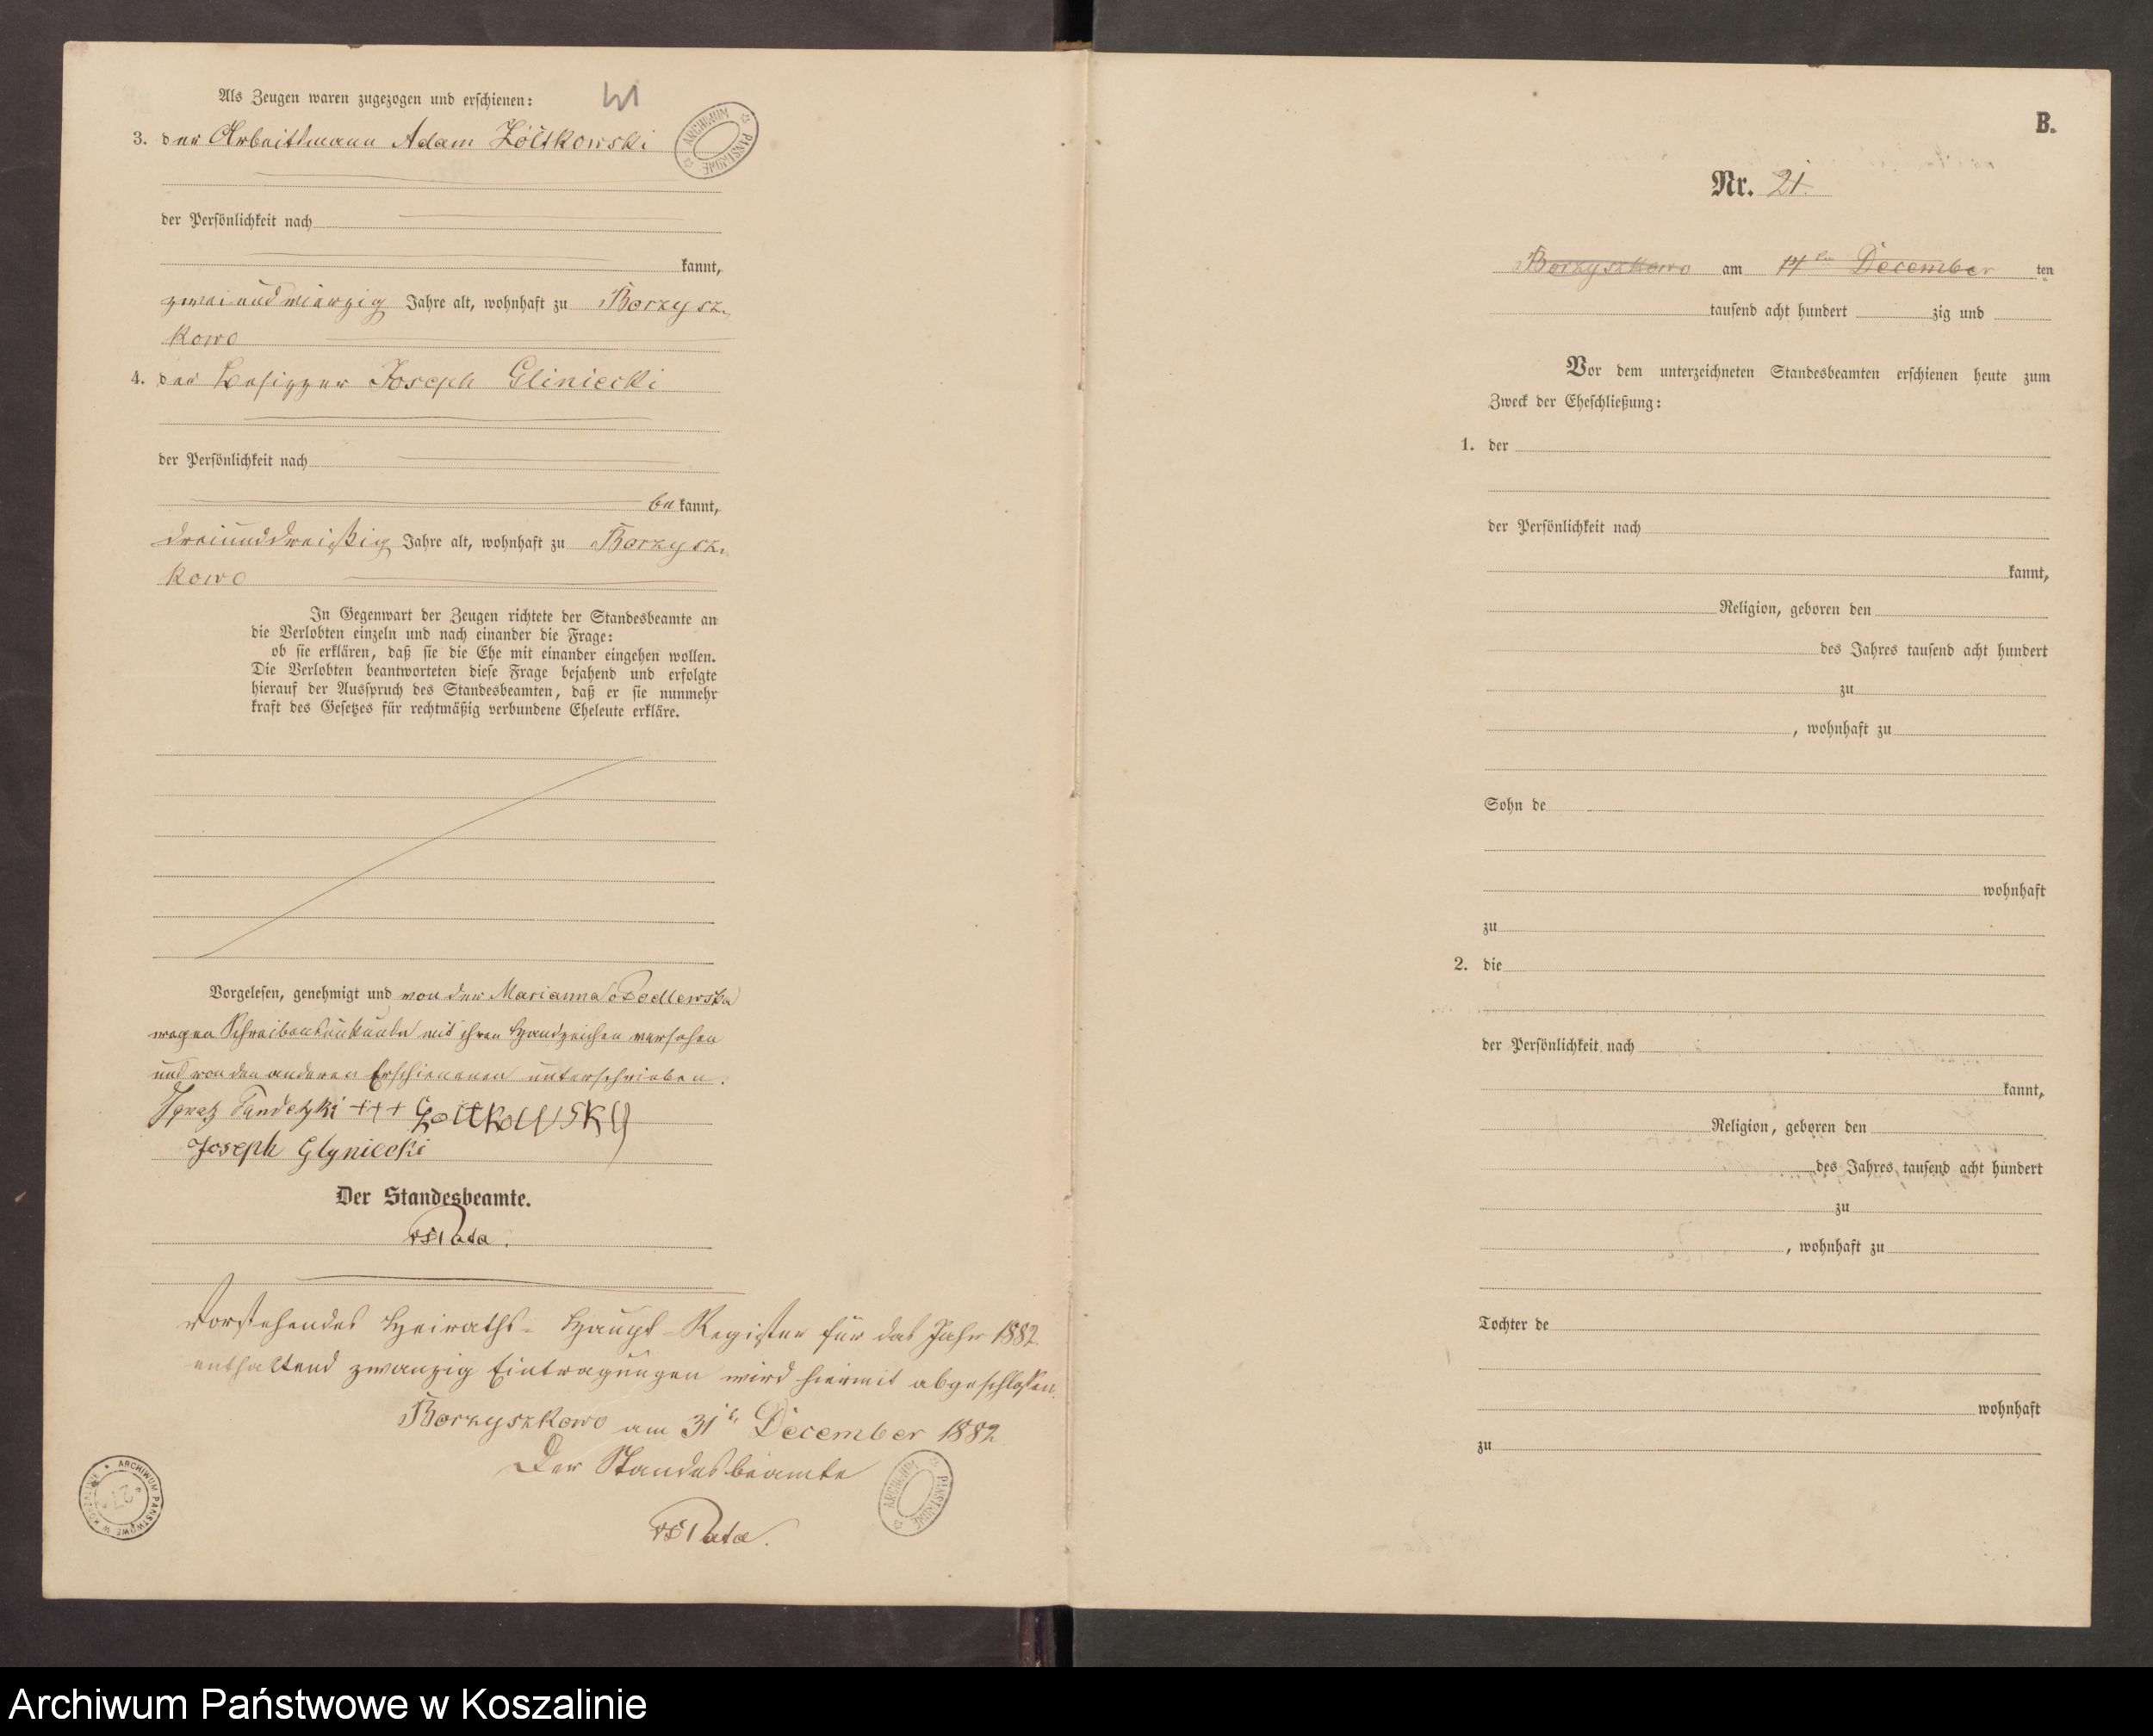 Als Zeugen waren zugezogen und erschienen:
41
3. der Arbeitsmann Adam Żółtkowski
der Persönlichkeit nach
kannt,
zweiundvierzig Jahre alt, wohnhaft zu Borzysz-
kowo
4. der Besitzer Joseph Gliniecki
der Persönlichkeit nach
be kannt,
dreiunddreißig Jahre alt, wohnhaft zu Borzysz-
kowo
In Gegenwart der Zeugen richtete der Standesbeamte an
die Verlobten einzeln und nach einander die Frage:
ob sie erklären, daß sie die Ehe mit einander eingehen wollen.
Die Verlobten beantworteten diese Frage bejahend und erfolgte
hierauf der Ausspruch des Standesbeamten, daß er sie nunmehr
kraft des Gesetzes für rechtmäßig verbundene Eheleute erkläre.
Vorgelesen, genehmigt und von der Marianna Podlewska
wegen Schreibensunkunde mit ihren Handzeichen versehen
und von den anderen Erschienenen unterschrieben.
Ignatz +++ Żoltkowski
Joseph Glyniecki
Der Standesbeamte.
Vorstehendes Heiraths-Haupt-Register für das Jahr 1882
enthaltend zwanzig Eintragungen wird hiermit abgeschlossen.
Borzyszkowo am 31 December 1882
Der Standesbeamte
ARCHIWUM PAŃSTWOWE
ARCHIWUM PAŃSTWOWE W KOSZALINIE
27
ARCHIWUM PAŃSTWOWE
B.
Nr. 21.
Borzyszkowo am 14ten December ten
tausend acht hundert zig und
Vor dem unterzeichneten Standesbeamten erschienen heute zum
Zweck der Eheschließung:
1. der
der Persönlichkeit nach
kannt,
Religion, geboren den
des Jahres tausend acht hundert
zu
, wohnhaft zu
Sohn de
wohnhaft
zu
2. die
der Persönlichkeit nach
kannt,
Religion, geboren den
des Jahres tausend acht hundert
zu
, wohnhaft zu
Tochter de
wohnhaft
zu
Archiwum Państwowe w Koszalinie